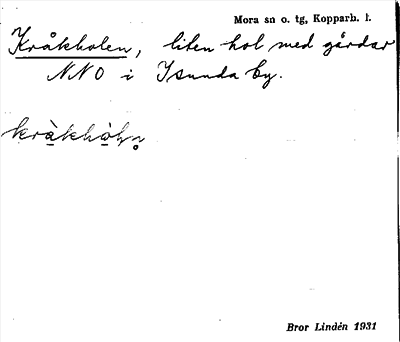 Mora sn o. tg, Kopparb. l.
Kråkholen, liten hol med gårdar
NNO i Isunda by.
Bror Lindén 1931